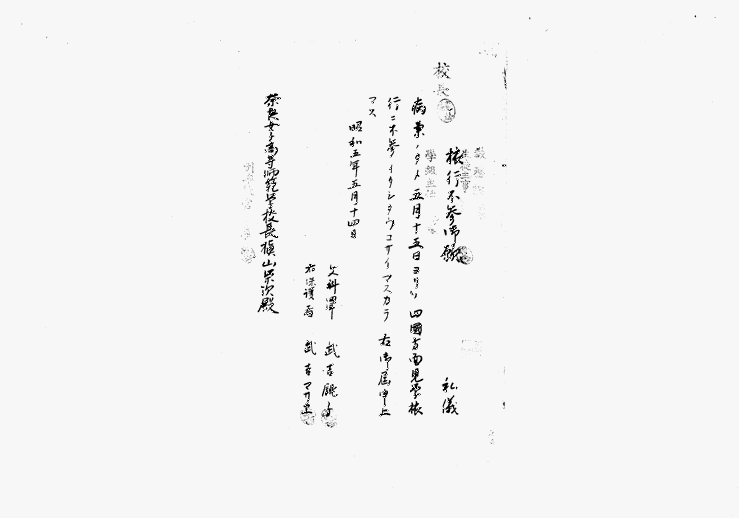 校長
旅行不参御願
私儀
病氣ノタメ五月十五日ヨリノ四國方面見學旅
行ニ不参イタシタウゴザイマスカラ右御届申上
マス
昭和五年五月十四日
文科四年 武吉 子
右保護者 武吉マサ
奈良女子高等師範学校長槇山栄次殿
學級主任